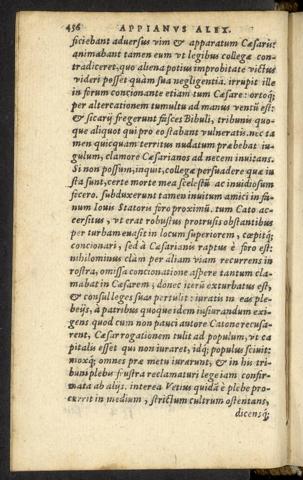 456 APPIANVS ALEX.
ficiebant aduersus vim & apparatum Cæsaris:
animabant tamen eum vt legibus collegæ con-
tradiceret, quo aliena potius improbitate victus
videri posset quàm sua negligentia. irrupit ille
in forum concionante etiam tum Cæsare: ortoq;
per altercationem tumultu ad manus ventũ est:
& sicarij fregerunt fasces Bibuli, tribunis quo-
que aliquot qui pro eo stabant vulneratis. nec ta
men quicquam territus nudatum præbebat iu-
gulum, clamore Cæsarianos ad necem inuitans.
Si non possum, inquit, collegæ persuadere quæ iu
sta sunt, certe morte mea scelestũ ac inuidiosum
ficero. subduxerunt tamen inuitum amici in fa-
num Iouis Statoris foro proximũ. tum Cato ac-
cersitus, vt erat robustus protrusis obstantibus
per turbam euasit in locum superiorem, cœpitq;
concionari, sed à Cæsarianis raptus è foro est:
nihilominus clàm per aliam viam recurrens in
rostra, omissa concionatione aspere tantum cla-
mabat in Cæsarem, donec iterũ exturbatus est,
& consul leges suas pertulit: iuratis in eas ple-
beijs, à patribus quoque idem iusiurandum exi-
gens quod cum non pauci autore Catone recusa-
rent, Cæsar rogationem tulit ad populum, vt ca
pitalis esset qui non iuraret, idq; populus sciuit:
moxq; omnes præ metu iurarunt, & in his tri-
buni plebu frustra reclamaturi lege iam confir-
mata ab alijs. interea Vetius quidã è plebe pro-
currit in medium, strictum cultrum ostentans,
dicensq;